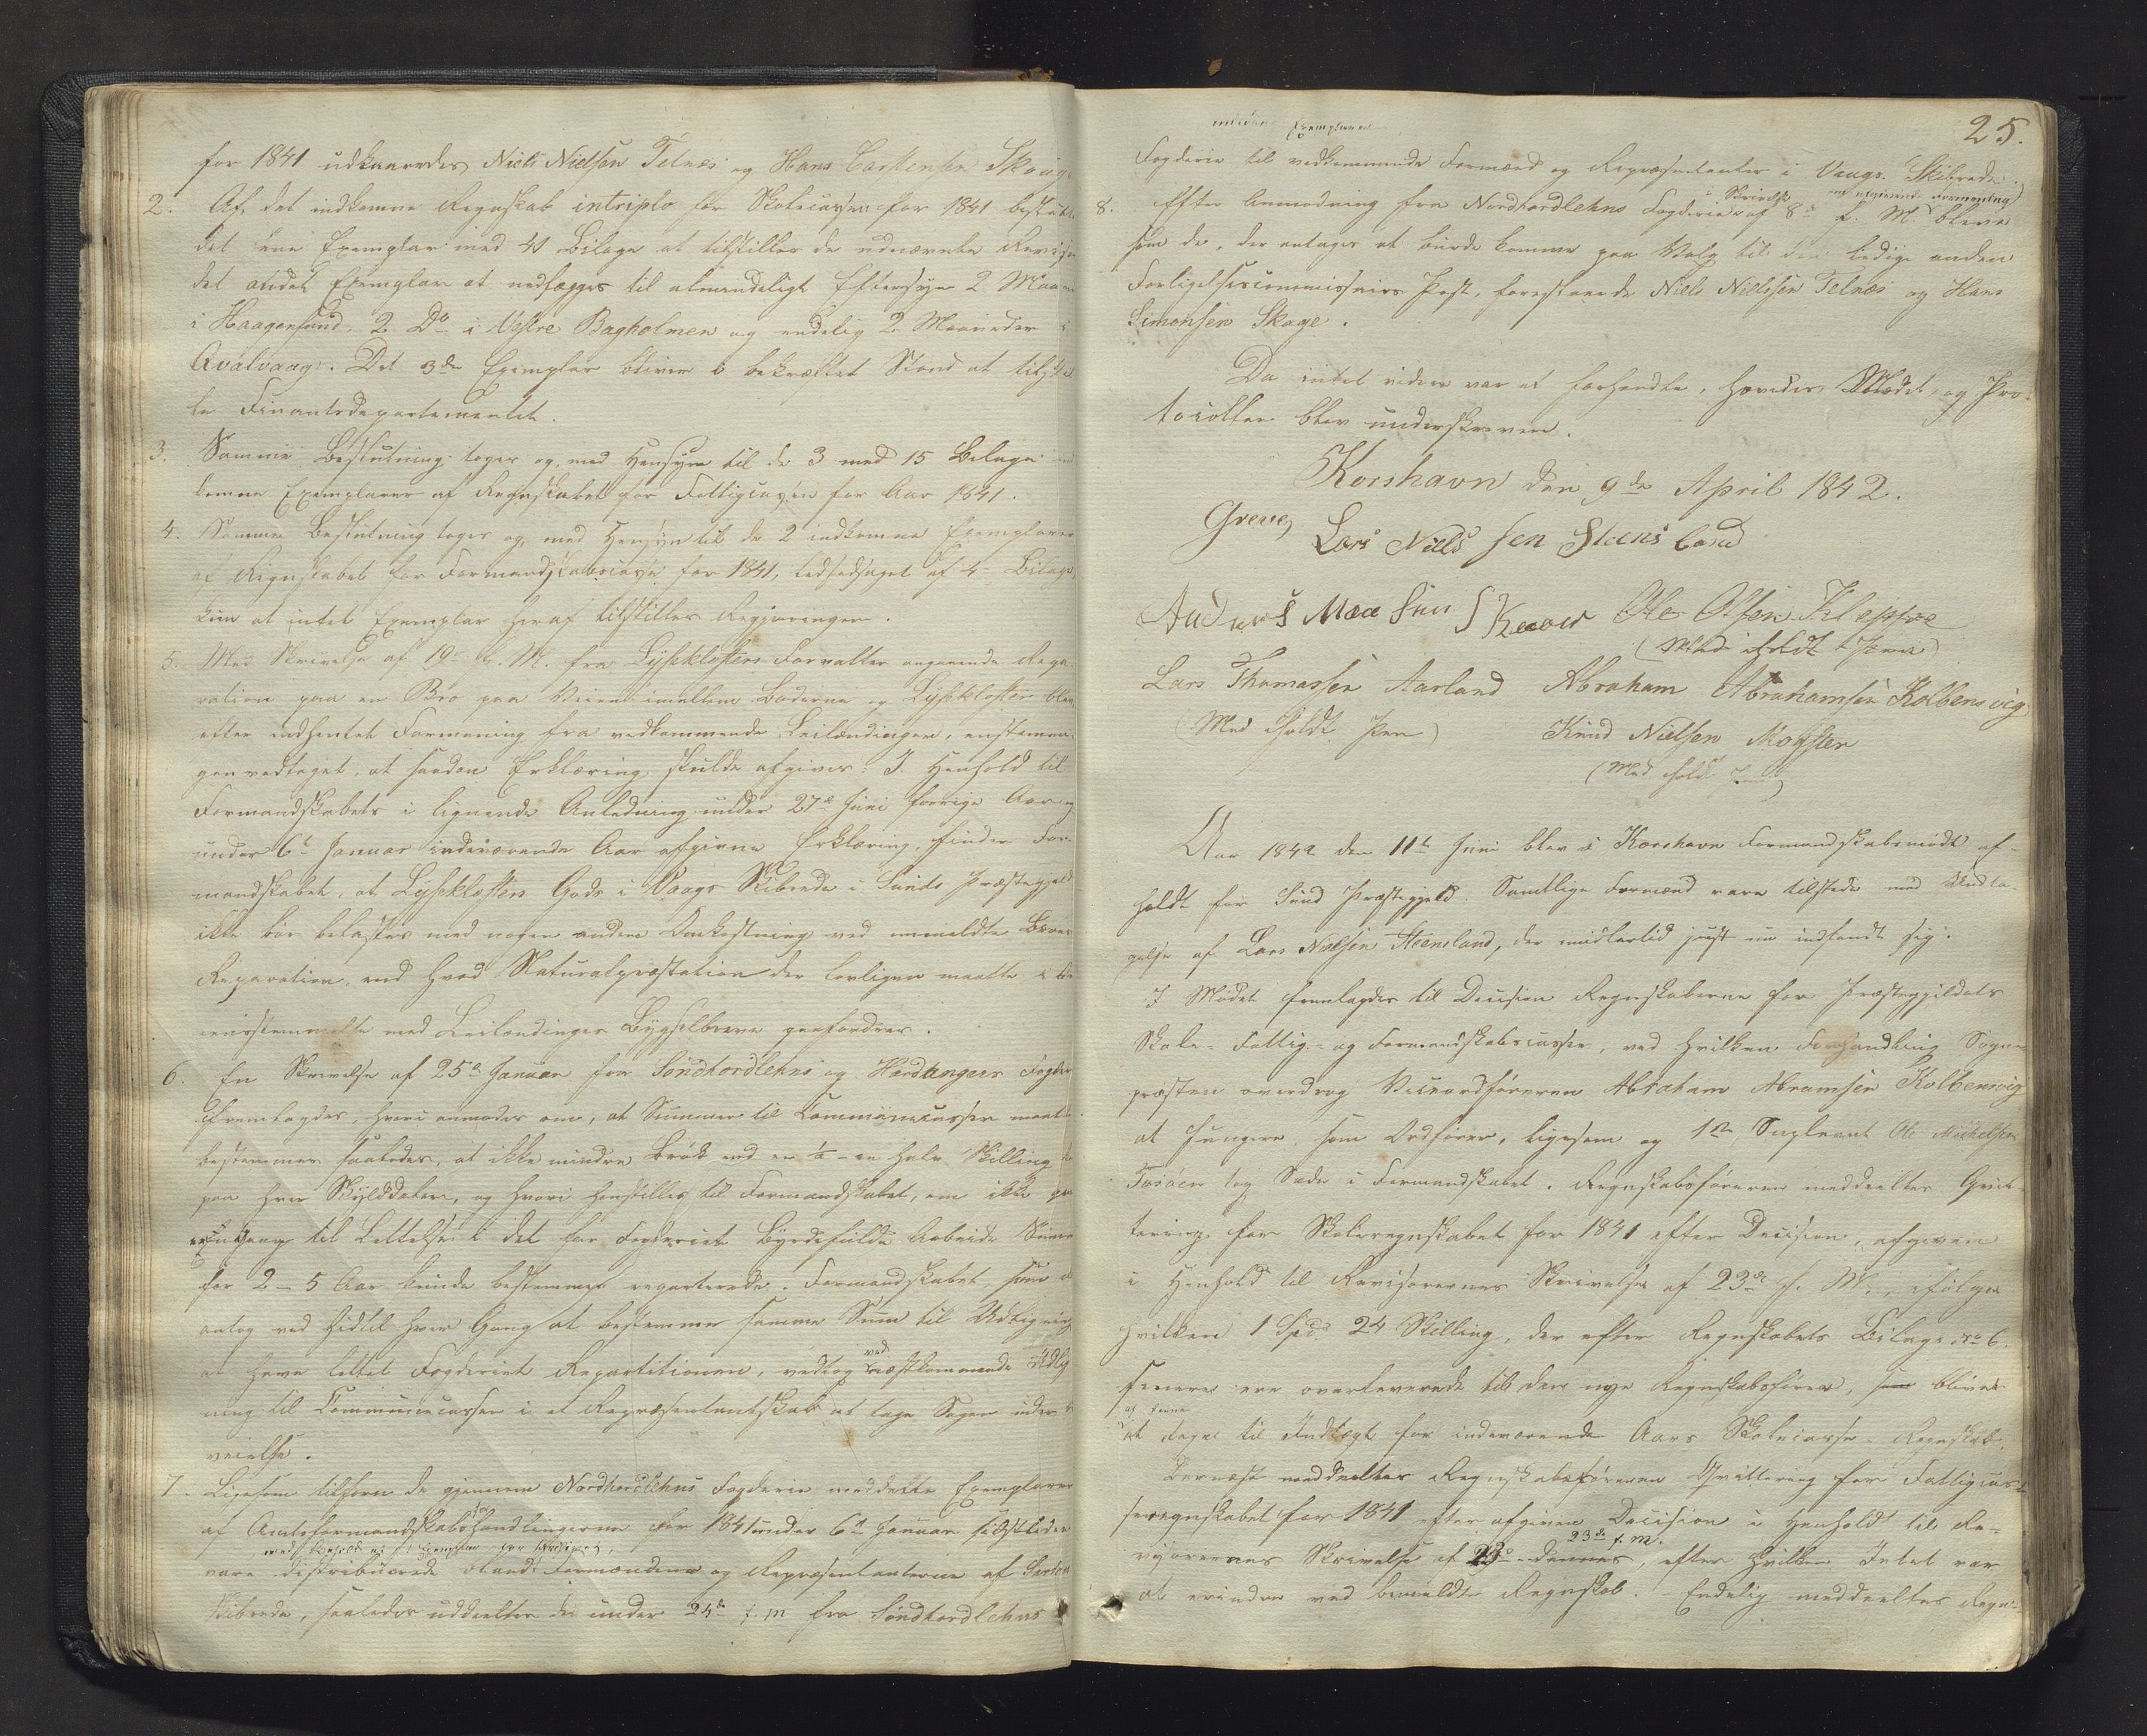 for 1841 udkaaredes Niels Nielsen Telnæs og Hans Carstensen Skaage
2. Af, det indkomne Regnskab intriplo for Skolecassen for 1841 beslut
det ene Exemplar med 40 Bilage at tilstilles de udnævnte Reviso
det andet Exemplar at nedlægges til almindeligt Eftersyn 2 Maane
i Haagensund, 2 Do i Vestre Bagholmen og endelig 2 Maaneder i
Qvalvaag. Det 3de Exemplar bliver i bekræftet Stand at tilstil
le Finantsdepartementet.
3. Samme Beslutning toges og, med Hensyn til de 3 med 15 Bilage ind
komne Exemplarer af Regnskabet for Fattigcassen for Aar 1841.
4. Samme Beslutning toges og, med Hensyn til de 2 indkomne Exemplarer
af Regnskabet for Formandskabscassen for 1841, ledsaget af 4 Bilage,
kun at intet Exemplar heraf tilstilles Regjeringen.
5. Med Skrivelse af 19de f. M. fra Lyseklosters Forvalter angaaende Repa
ration paa en Bro paa Veien imellem Baderne og Lysekloster blev
efter indhentet Formening fra vedkommende Leilændinger, eenstemmi
gen vedtaget, at saadan Erklæring skulde afgives: I Henhold til
Formandskabets i lignende Anledning under 27de Juni forrige Aar og
under 6te Januar indeværende Aar afgivne Erklæring, finder For-
mandskabet, at Lyseklosters Gods i Vaags Skibrede i Sunds Præstegjeld
ikke bør belastes med nogen anden Omkostning ved anmeldte Broes
Reparation, end hvad Naturalpræstation der lovligen maatte i Over
eensstemmelse med Leilændinges Bygselbreve paafordres.
6. En Skrivelse af 25de Januar fra Søndhordlehns og Hardangers Fogderi
fremlagdes, hvori anmodes om, at Summen til Communecassen maatte
bestemmes saaledes, at ikke mindre Brøk end en ½ - en halv Skilling
paa hver Skylddaler, og hvori henstilles til Formandskabet, om ikke paa
een Gang til Lettelse i det for Fogderiet Byrdefulde Arbeide Summen
for 2 - 5 Aar kunde bestemmes reparterede. Formandskabet, som
antog ved hidtil hver Gang at bestemme samme Sum til Udligning
at have lettet Fogderiet Repartitionen, vedtog ved næstkommende Udlig
ning til Communecassen i et Repræsentantskab at tage Sagen under O
veielse.
7. Ligesom tilforn de gjennem Nordhordlehns Fogderie meddeelte Exemplarer
af Amtsformandskabsforhandlingerne for 1841 under 6te Januar sidstleden
vare distribuerede blandt Formændene og Repræsentanterne af Sartor
Skibrede, saaledes uddeeltes de under 24de f. M. fra Søndhordlehns
25.
Exemplarer
Fogderie til vedkommende Formænd og Repræsentanter i Vaags Skibrede.
8. Efter Anmodning fra Nordhordlehns Fogderie i Skrivelse af 8de f. M. bleve
som de, der antages at burde komme paa Valg til den ledige anden
Forligelsescommissairs Post, foreslaaede Niels Nielsen Telnæs og Hans
Simonsen Skage.
Da intet videre var at forhandle, hævedes Mødet, og Pro-
tocollen blev underskreven.
Korshavn den 9de April 1842.
Greve, Lars Niels sen Steens land
Anders Mee Ole Olsen Kleppe
(Med iholdt Pen)
Lars Thomassen Aarland Abraham Abrahamsen Kolbensvig
(Med iholdt Pen) Knud Nielsen Møgster
(Med iholdt Pen)
Aar 1842 den 11te Juni blev i Korshavn Formandskabsmøde af-
holdt for Sund Præstegjeld. Samtlige Formænd vare tilstede med Undta-
gelse af Lars Nilsen Steensland, der imidlertid just nu indfandt sig.
I Mødet fremlagdes til Decision Regnskaberne for Præstegjeldets
Skole- Fattig- og Formandskabscasser, ved hvilken Forhandling Sogne
præsten overdrog Viceordføreren Abraham Abramsen Kolbensvig
at fungere som Ordfører, ligesom og 1ste Supleant Ole Mickelsen
Tosøen tog Sæde i Formandskabet. Regnskabsføreren meddeeltes Qvit-
tering for Skoleregnskabet for 1841 efter Decision, afgiven
i Henhold til Revisorernes Skrivelse af 23de f. M., ifølge
hvilken 1 Spd 24 Skilling, der efter Regnskabets Bilage No 6.
senere ere overleverede til den nye Regnskabsfører, bliver
af denne
at tage til Indtægt for indeværende Aars Skolecasse-Regnskab.
Dernæst meddeeltes Regnskabsføreren Qvittering for Fattigcas-
seregnskabet for 1841 efter afgiven Decision i Henhold til Re-
23de f. M.
visorernes Skrivelse af 23de dennes, efter hvilken Intet var
at erindre ved bemeldte Regnskab. - Endelig meddeeltes Regn-